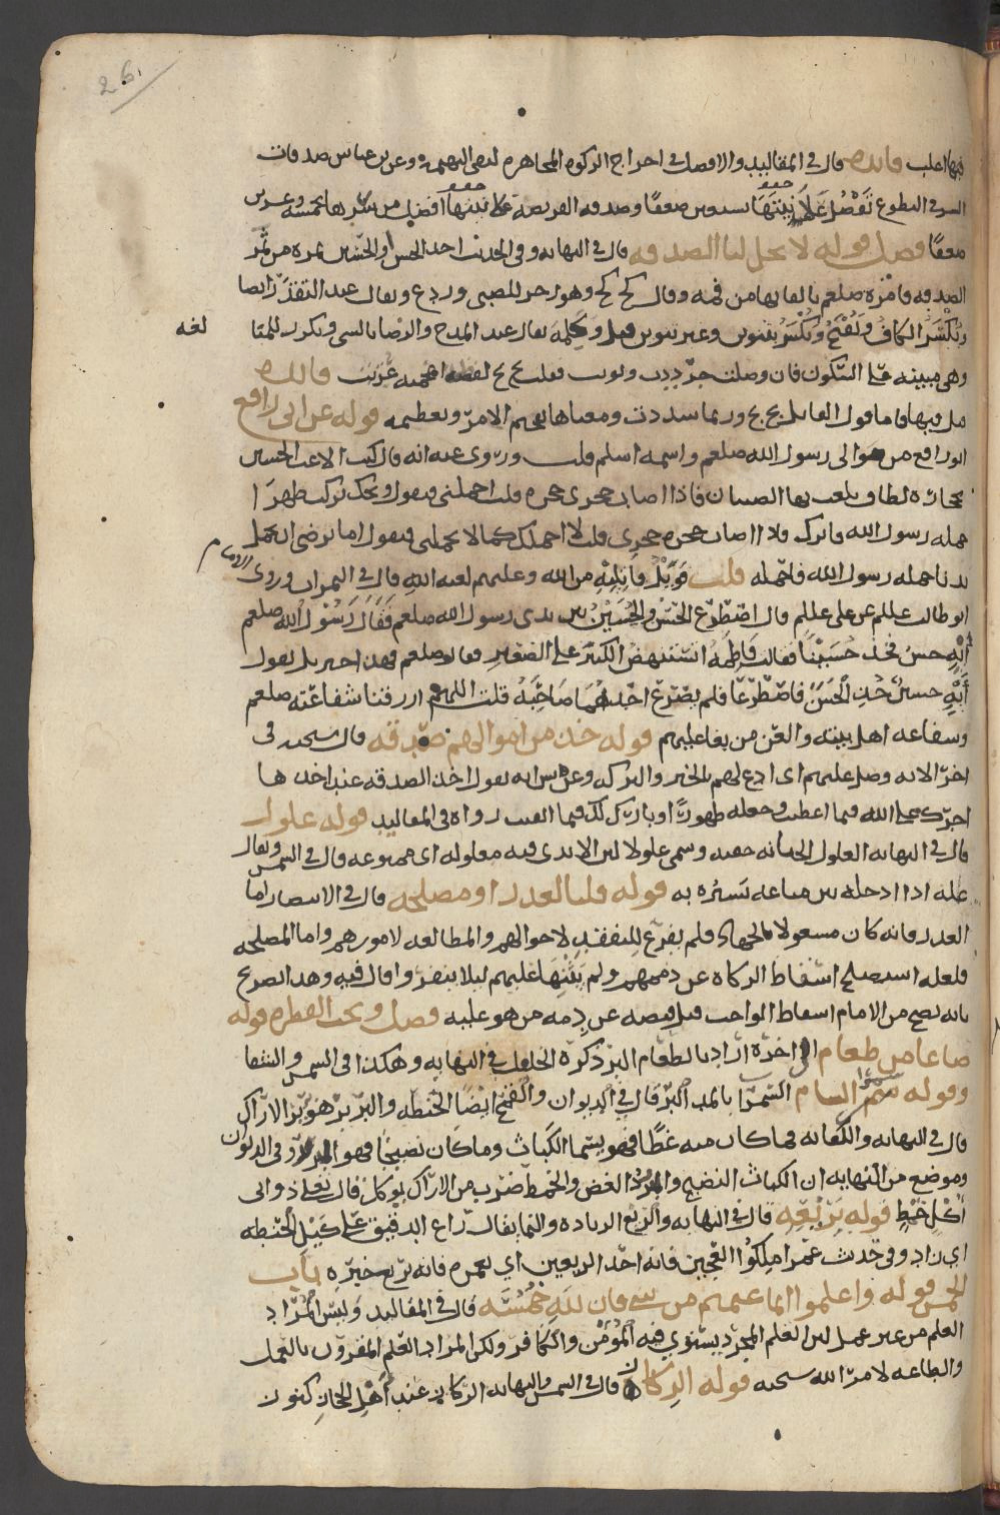 26
فيها اغلب فائده قال في المقاليد والافضل في اخراج الزكوه المجاهره لنفي التهمه وعن ابن عباس صدقات
السر في التطوع تفضل علانيتها بسبعين ضعفا وصدقه الفريضه علانيتها افضل من سرها بخمسه وعشرين
ضعفا فصل قوله لا تحل لنا الصدقه قال في النهايه وفي الحديث اخذ الحسن او الحسين تمره من تمر
الصدقه فامره صلعم بالقايها من فمه وقال كخ كخ وهو زجر للصبي وردع ويقال عند التقذر ايضا
وتكسر الكاف وتفتح وتكسر بتنوين وغير تنوين قيل وكلمه تقال عند المدح والرضا بالشي وتكرر للمبالغه
وهي مبنيه على السكون فان وصلت جررت ونونت فقلت بخ بخ لفظه اعجميه عربت فائده
وربما شددت ومعناها تفخيم الامر وتعظيمه قوله عن ابي رافع
ابو رافع من موالي رسول الله صلعم واسمه اسلم قلت وروي عنه انه قال كنت الاعب الحسين
بحجاره لطاف يلعب بها الصبيان فاذا اصاب حجري حجره قلت احملني فيقول ويحك تركب ظهرا
حمله رسول الله فاترك فاذا اصاب حجره حجري قلت لا احملك كما لا تحملني فيقول اما ترضى ان تحمل
بدنا حمله رسول الله فاحمله قلت فويل قاتليه من الله وعليهم لعنه الله قال في وروى الامام
ابو طالب علم عن علي علم قال اصطرع الحسن والحسين بين يدي رسول الله صلعم فقال رسول الله صلعم
ايه حسن خذ حسينا فقالت فاطمه استنهض الكبير على الصغير فقال صلعم هذا جبريل يقول
ايه حسين خذ الحسن فاصطرعا فلم يصرع احدهما صاحبه قلت اللهم ارزقنا شفاعته صلعم
وشفاعه اهل بيته والعن من بغا عليهم قوله خذ من اموالهم صدقه قال سبحنه في
اخر الايه وصل عليهم اي ادع لهم بالخير والبركه وعن يقول اخذ الصدقه عند اخذها
اجرك الله فيما اعطيت وجعله طهورا وبارك لك فيما ابقيت رواه في المقاليد قوله غلول
قال في النهايه الغلول الخيانه خفيه وسمي غلولا لان الايدي فيه مغلوله اي ممنوعه قال في الشمس ويقال
غله اذا ادخله بين متاعه يستره به قوله قلنا لعذر او مصلحه قال في الانتصار اما
العذر فانه كان مشغولا بالجهاد فلم يفرغ للتفقد لاحوالهم والمطالعه لامورهم واما المصلحه
فلعله استصلح اسقاط الزكاه عن ذممهم ولم يثنها عليهم ليلا ينفروا قال فيه وهذا تصريح
بانه يصح من الامام اسقاط الواجب قبل قبضه عن ذمه من هو عليه فصل وتجب الفطره قوله
صاعا من طعام الى اخره اراد بالطعام البر ذكره في النهايه وهكذا في الشمس والشفا
وقوله سمرا الشام السمرا بالمد البر قال في الديوان والقمح ايضا الحنطه والبرير هو ثمر الاراك
قال في النهايه والكفايه فما كان منه غضا فهو يسما الكباث وما كان نضيجا فهو وفي الديوان
وموضع من النهايه ان الكباث النضيج الغض والخمط ضرب من الاراك يوكل قال تعلى ذواتي
اكل خمط قوله بريعه قال في النهايه والريع الزياده والنما يقال راع الدقيق على كيل الحنطه
اي زاد وفي حديث عمر املكوا العجين فانه احد الريعين اي فانه تريع خبزه باب
الخمس قوله واعلموا انما غنمتم من شي فان لله خمسه قال في المقاليد وليس المراد
العلم من غير عمل لان العلم المجرد يستوي فيه المؤمن والكافر ولكن المراد العلم المقرون بالعمل
والطاعه لامر الله سبحنه قوله الركاز قال في الشمس والنهايه الركاز عند اهل الحجاز كنوز